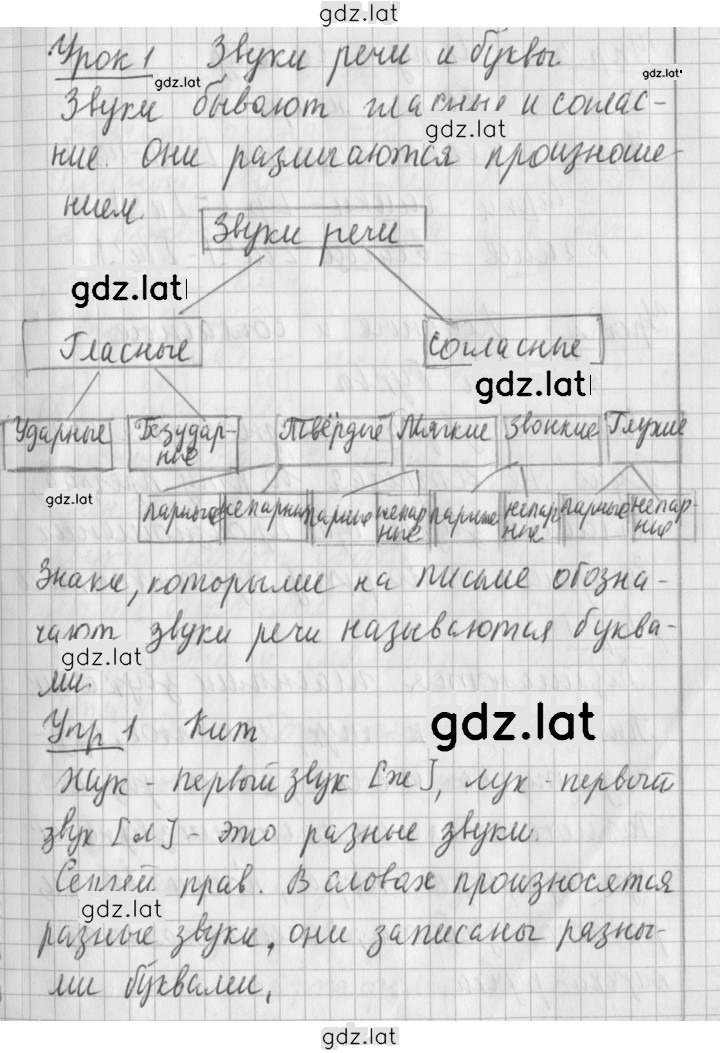 gdz.lat
Урок 1 Звуки речи и буквы
gdz.lat gdz.lat
Звуки бывают гласные и соглас-
gdz.lat
ние. Они различаются произноше-
нием.
Звуки речи
gdz.lat
Гласные Согласные
gdz.lat
Ударные Безудар-ные Твёрдые Мягкие Звонкие Глухие
gdz.lat
парные непарные парные непар-ные парные непар-ные парные непар-ние
Знаки, которыми на письме обозна-
чают звуки речи называются буква-
gdz.lat
ми.
Упр 1 Кит
gdz.lat
Жук - первый звук [ж], лук - первый
звук [л] - это разные звуки.
Сергей прав. В словах произносятся
gdz.lat
разные звуки, они записаны разны-
ми буквами.
gdz.lat